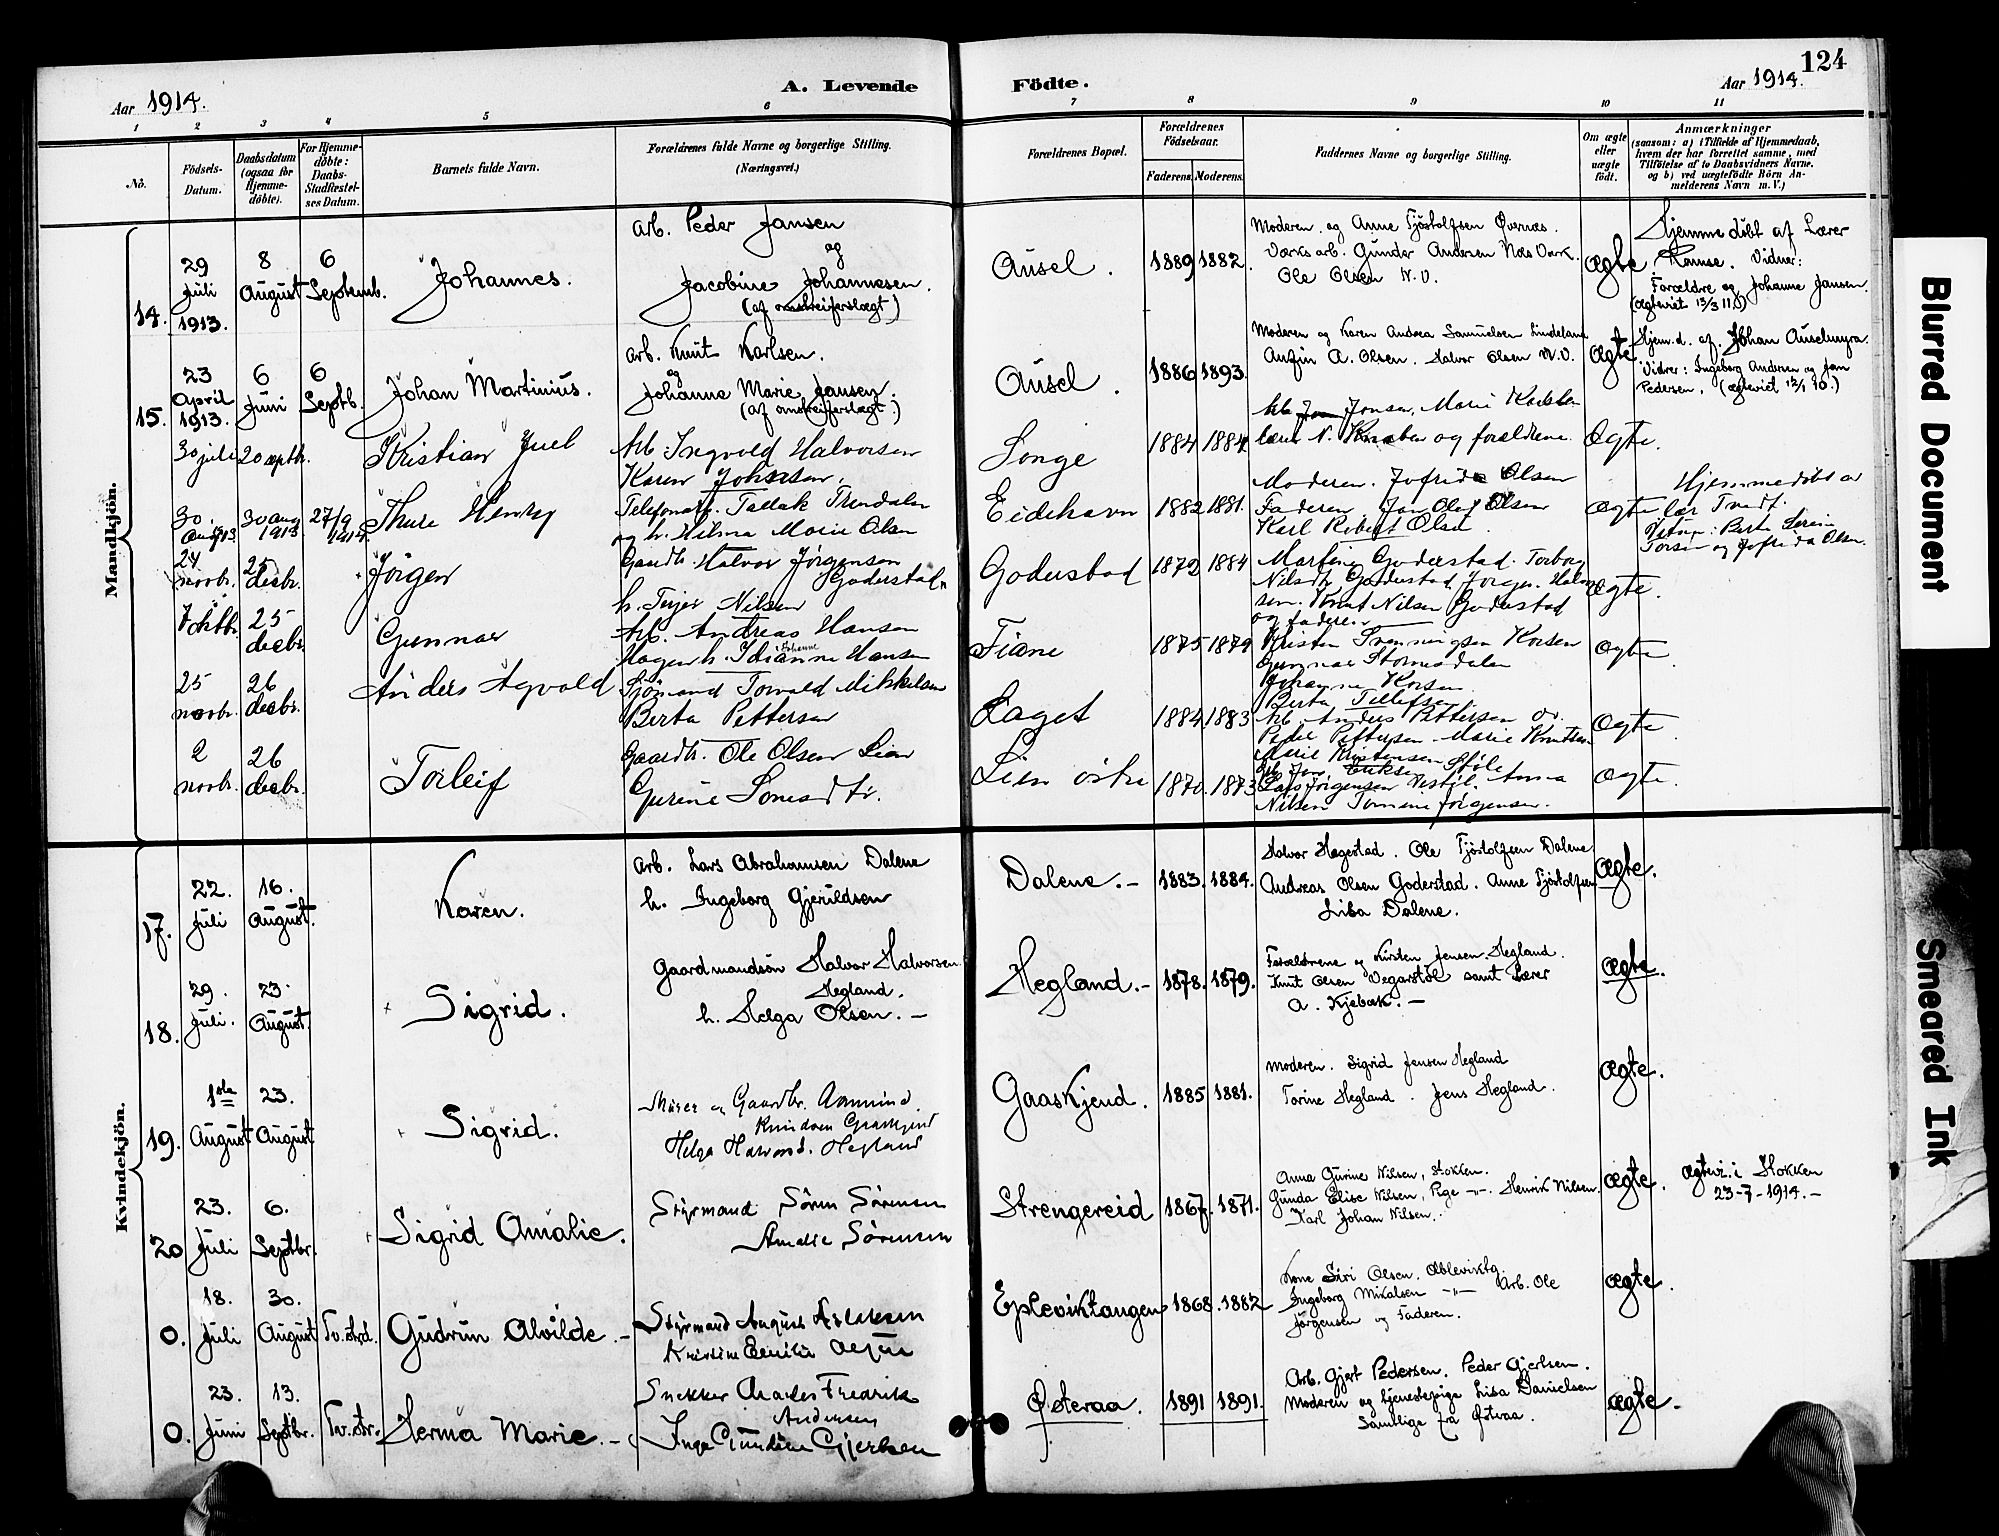 124
Aar 1914.
A. Levende Födte.
Aar 1914.
1 2 3 4 5 6 7 8 9 10 11
No.
Födsels-Datum.
Daabsdatum (ogsaa for Hjemme-döbte).
For Hjemme-döbte: Daabs-Stadfæstel-ses Datum.
Barnets fulde Navn.
Forældrenes fulde Navne og borgerlige Stilling.
(Næringsvei.)
Forældrenes Bopæl.
Forældrenes Födselsaar.
Faderens. Moderens.
Faddernes Navne og borgerlige Stilling.
Om ægte eller uægte födt.
Anmærkninger
(saasom: a) i Tilfælde af Hjemmedaab,
hvem der har forrettet samme, med
Tilföielse af to Daabsvidners Navne,
og b) ved uægtefödte Börn An-
melderens Navn m. V.)
Mandkjön.
14. 29 Juli 1913. 8 August 6 Septemb. Johannes.
Arb. Peder Jansen
og
Jacobine Johannesen.
(af omstreiferslægt)
Ausel. 1889 1882.
Moderen og Anne Tjöstolfsen Övernæs.
Værksarb. Gunder Andersen Næs Værk.
Ole Olsen N.V.
Ægte
Hjemmedöbt af Lærer
Ramse. Vidner:
Forældre og Johanne Jansen.
(ægteviet 13/3 11.)
15. 23 April 1913. 6 Juni 6 Septb. Johan Martinius.
Arb. Knut Karlsen.
og
Johanne Marie Jansen.
(af omstreiferslægt.)
Ausel. 1886 1893.
Moderen og Karen Andrea Samuelsen Lindeland
Anzin A. Olsen. Halvor Olsen N.V.
Ægte
Hjem.d. af Johan Auselmyra.
Vidner: Ingeborg Andersen og Jam
Pedersen. (ægteviet 12/1 10.)
30 juli 20 septb. Kristian Juel
Arb. Ingvald Halvorsen
Karen Johnsen.
Songe 1884 1884
Arb. Jonsen, Marie
lærer N. Knaben og forældrene.
Ægte.
30. aug 1913. 30 aug 1913 27/9 1914 Thure Henry
Telefonarb. Tallak Trondalen
og h. Hilma Marie Olsen
Eidehavn 1882 1881.
Moderen. Jofrida Olsen
Faderen Jan Olaf Olsen
Karl Robert Olsen
Ægte
Hjemmedöbt av
lær Tvedt.
Vitner: Berte Serin
Torsen og Jofrida Olsen.
24 novbr. 25 decbr. Jörgen
Gaardbr. Halvor Jörgensen
Goderstad
h. Terjer Nilsen
Goderstad 1872 1884
Martine Goderstad. Torborg
Nilsdtr Goderstad Jörgen Halvor-
sen. Knut Nilsen Goderstad
og faderen
Ægte.
7 oktbr. 25 decbr. Gunnar
Arb. Andreas Hansen
Hagen h. Idianne Hansen
Johanne
Fiane 1875 1879
Kristen Svenningsen Korsen
Gunnar Stomsdalen
Johanne Korsen
Berta Tellefsen
Ægte
25 novbr. 26 decbr. Anders Agvald
Sjömand Torvald Mikkelsen
Berta Pettersen
Laget 1884 1883
Arb. Anders Pettersen
Peder Pettersen Marie Knutsen
Marie Kristensen Stöle
Ægte
2 novbr. 26 decbr. Torleif
Gaardbr. Ole Olsen Lien
Gurine
Lien östre 1870. 1873
Lars Jörgensen Anna
Nilsen Jörgensen.
Ægte.
Kvindekjön.
17. 22. Juli 16. August. Karen.
Arb. Lars Abrahamsen Dalene
h. Ingeborg Gjeruldsen
Dalene.- 1883. 1884.
Halvor Hegestad. Ole Tjöstolfsen Dalene
Andreas Olsen Goderstad. Anne Tjöstolfsen
Lisa Dalene.
Ægte.
18. 29. Juli. 23. August. Sigrid.
Gaardmandsön Halvor Halvorsen
Hegland.
h. Helga Olsen.-
Hegland.- 1878. 1879.
Forældrene og Kirsten Jensen Hegland.
Knut Olsen Vegarstöl samt Lærer
A. Kjebæk.-
Ægte.
19. 1ste August 23. August Sigrid.
Murer og Gaardbr. Aamund
Knudsen Gaaskjend
Helga Halvorsd. Hegland
Gaaskjend. 1885 1881.
Moderen. Sigrid Jensen Hegland
Torine Hegland. Jens Hegland.
Ægte.
20 23. Juli 6. Septbr. Sigrid Amalie.
Styrmand Sören Sörensen
Amalie Sörensen
Strengereid 1867. 1871.
Anna Gurine Nilsen, Stokken.
Gunda Elise Nilsen, Pige -"-. Henrik Nilsen.
Karl Johan Nilsen.
Ægte.
Ægtevi. i Stokken
23-7-1914.-
0. 18. Juli 30. August Tv.strd. Gudrun Alvilde.-
Styrmand August Aslaksen
Kristine Emilie Olsen
Epleviktangen 1868. 1882
Kone Siri Olsen. Æbleviktg.
Ingeborg Mikalsen -"- Arb. Ole
Jörgensen og Faderen.
Ægte.
0. 23. Juni 13. Septbr. Tv.str. Herma Marie.-
Snekker Charles Fredrik
Andersen
Inga Gundine Gjertsen
Österaa. 1891 1891.
Arb. Gjert Pedersen. Peder Gjertsen.
Moderen og tjenestepige Lisa Danielsen
samtlige fra Österaa.
Ægte.-
Blurred Document
Smeared Ink